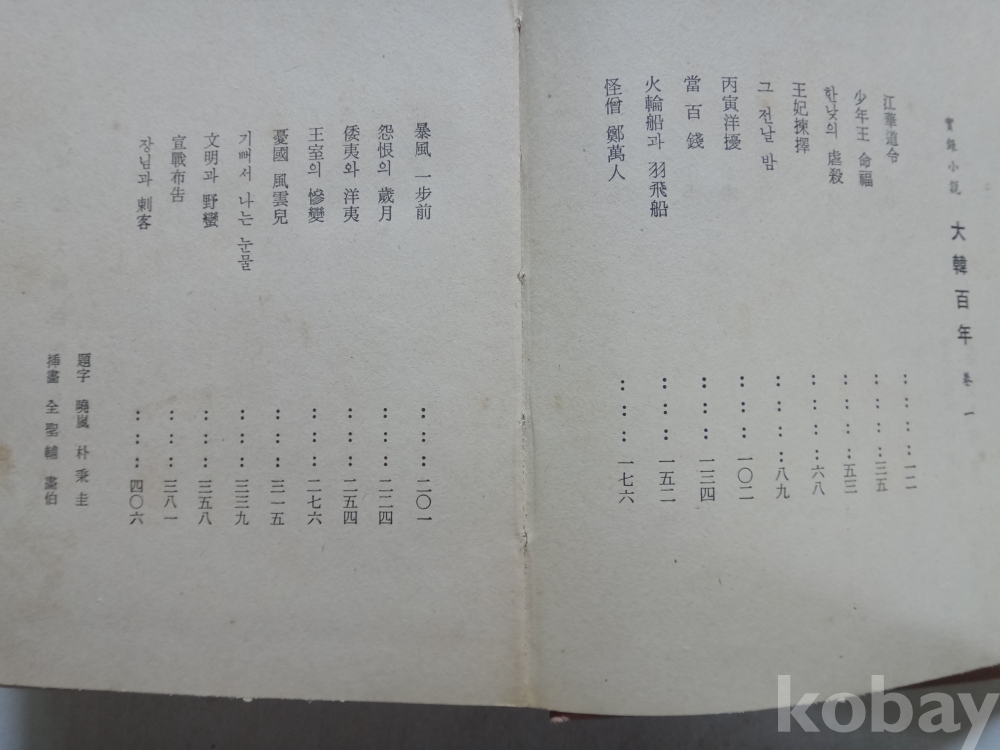 實錄小說 大韓百年 卷一
江華道令 ……… 一二
少年王 命福 ……… 三五
한낮의 虐殺 ……… 五三
王妃揀擇 ……… 六八
그 전날 밤 ……… 八九
丙寅洋擾 ……… 一〇二
當百錢 ……… 一三四
火輪船과 羽飛船 ……… 一五二
怪僧 鄭萬人 ……… 一七六
暴風 一步前 ……… 二〇一
怨恨의 歲月 ……… 二二四
倭夷와 洋夷 ……… 二五四
王室의 慘變 ……… 二七六
憂國 風雲兒 ……… 三一五
기뻐서 나는 눈물 ……… 三三九
文明과 野蠻 ……… 三五八
宣戰布告 ……… 三八一
장님과 刺客 ……… 四〇六
題字 曉嵐 朴秉圭
揷畵 全聖輔 畵伯
kobay